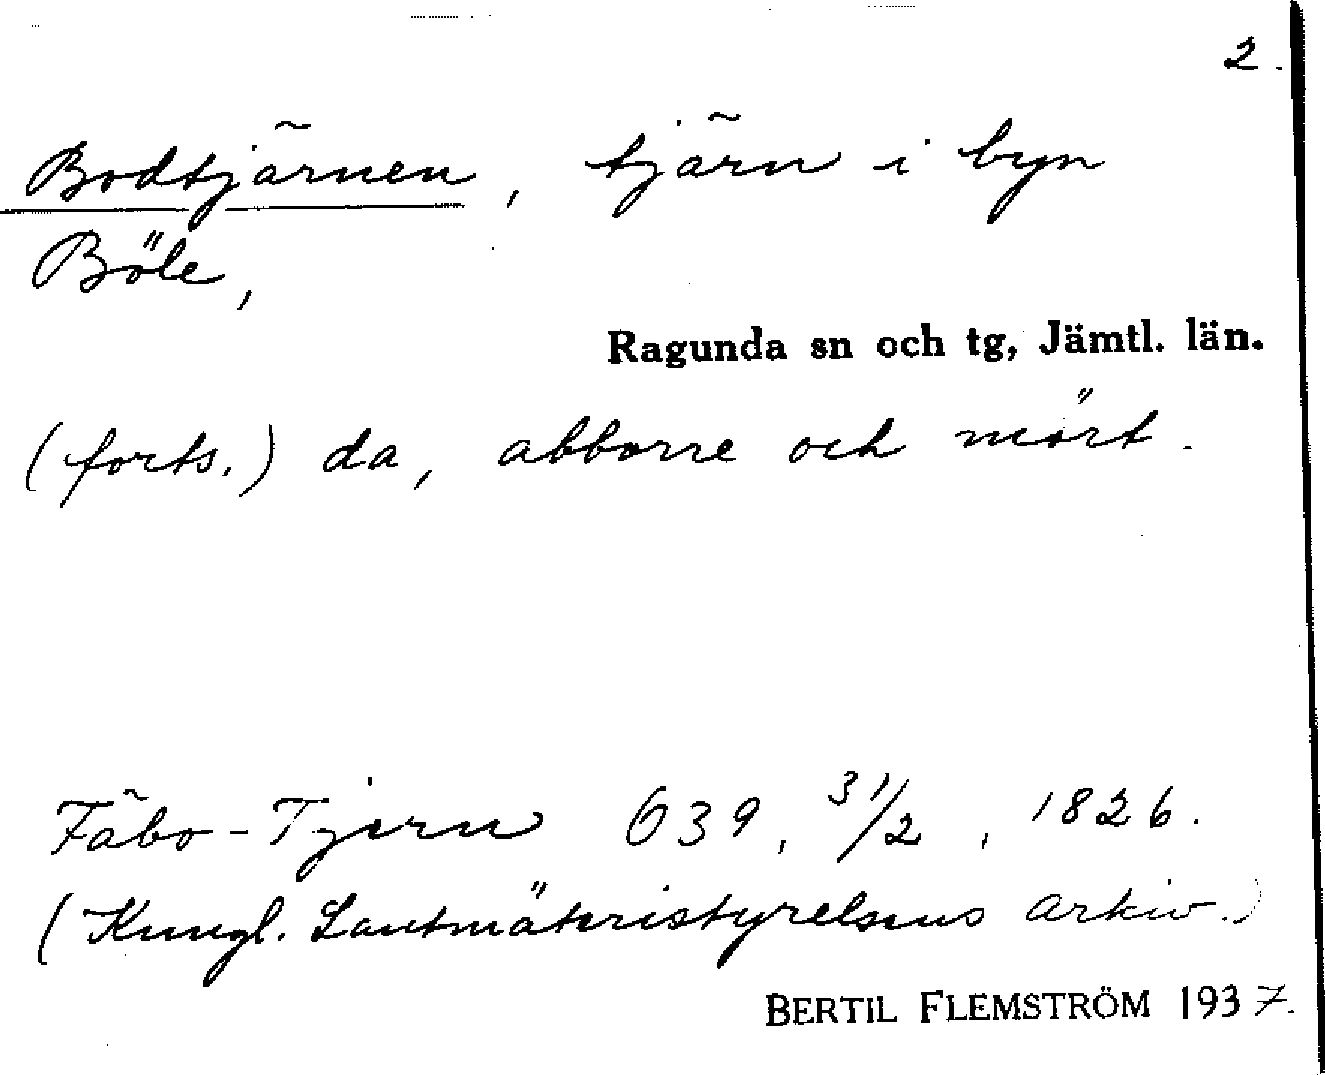 2.
Bodtjärnen, tjärn i byn
Böle,
Ragunda sn och tg, Jämtl. län.
(forts.) da, abborre och mört.
Fäbo-Tjern 639, 31/2, 1826.
(Kungl. Lantmäteristyrelsens arkiv.)
BERTIL FLEMSTRÖM 1937.